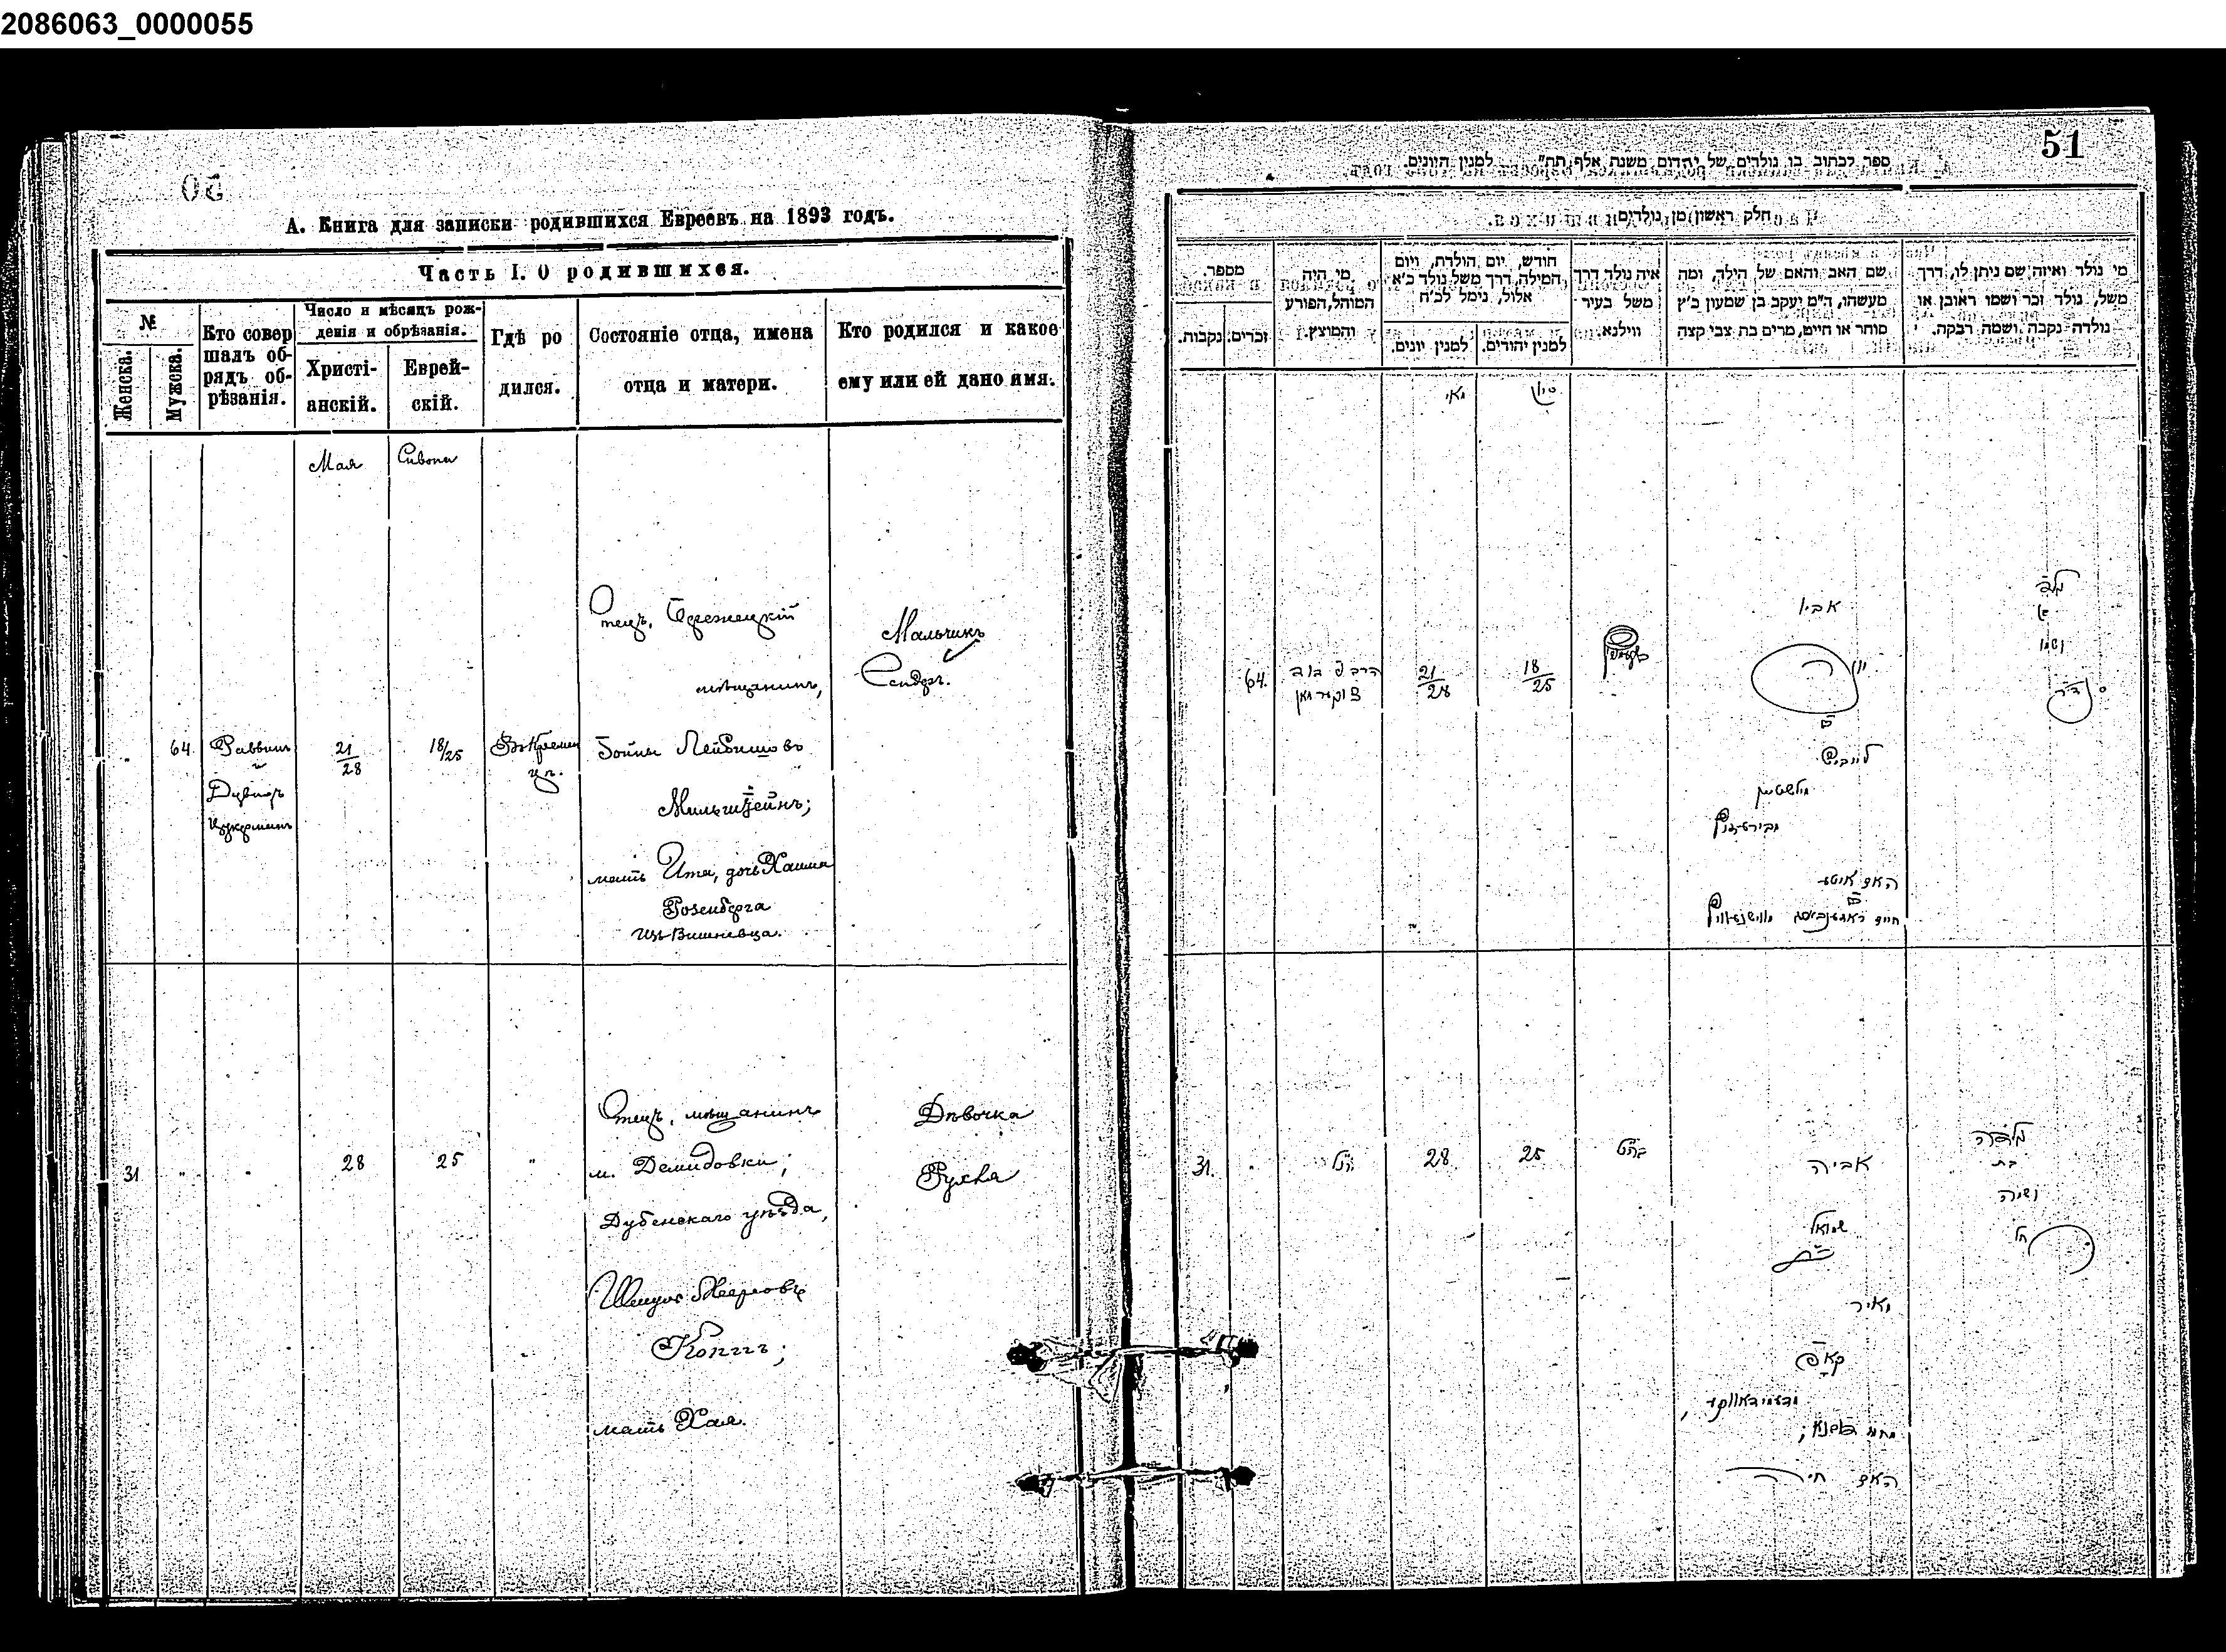 2086063_0000055
А. Книга для записки родившихся Евреевъ на 1893 годъ.
Часть I. О родившихся.
№
Женска.
Мужска.
Кто совер
шалъ об-
рядъ об-
рѣзанія.
Число и мѣсяцъ рож-
денія и обрѣзанія.
Христі-
анскій.
Еврей-
скій.
Гдѣ ро
дился.
Состояніе отца, имена
отца и матери.
Кто родился и какое
ему или ей дано имя.
Мая
Сивона
64.
Раввинъ
Цукерманъ
21
28
18/25
Отецъ,
мѣщанинъ,
Лейбишовъ
Мильштейнъ;
мать Ита, дочь Хаима
Розенберга
изъ Вишневца.
Мальчикъ
Сендеръ.
31
"
"
28
25
"
Отецъ, мѣщанинъ
м. Демидовки;
Дубенскаго уѣзда,
Шмуль Мееровъ
Коппъ;
мать Хая.
Дѣвочка
Рухля
51
ספר לכתוב בו נולדים של יהודים משנת אלף תת" למנין היונים.
חלק ראשון מן נולדים
מספר.
זכרים.
נקבות.
מי היה
המוהל, הפורע
והמוצץ.
חודש, יום הולדת, ויום
המילה, דרך משל נולד כ'א
אלול, נימל לכ'ח
למנין יונים.
למנין יהודים.
איה נולד דרך
משל בעיר
ווילנא.
שם האב והאם של הילד, ומה
מעשהו, ה"מ יעקב בן שמעון כ'ץ
סוחר או חיים, מרים בת צבי קצה
מי נולד ואיזה שם ניתן לו, דרך
משל, נולד זכר ושמו ראובן או
נולדה נקבה ושמה רבקה.
מאי
סיון
64.
צוקערמאן
21
28
18
25
אביו
לייביש
מילשטיין
האם איטע
ושמו
31.
הנ"ל
28
25
אביה
שמואל
מאיר
קאפ
האם חיה
בת
ושמה